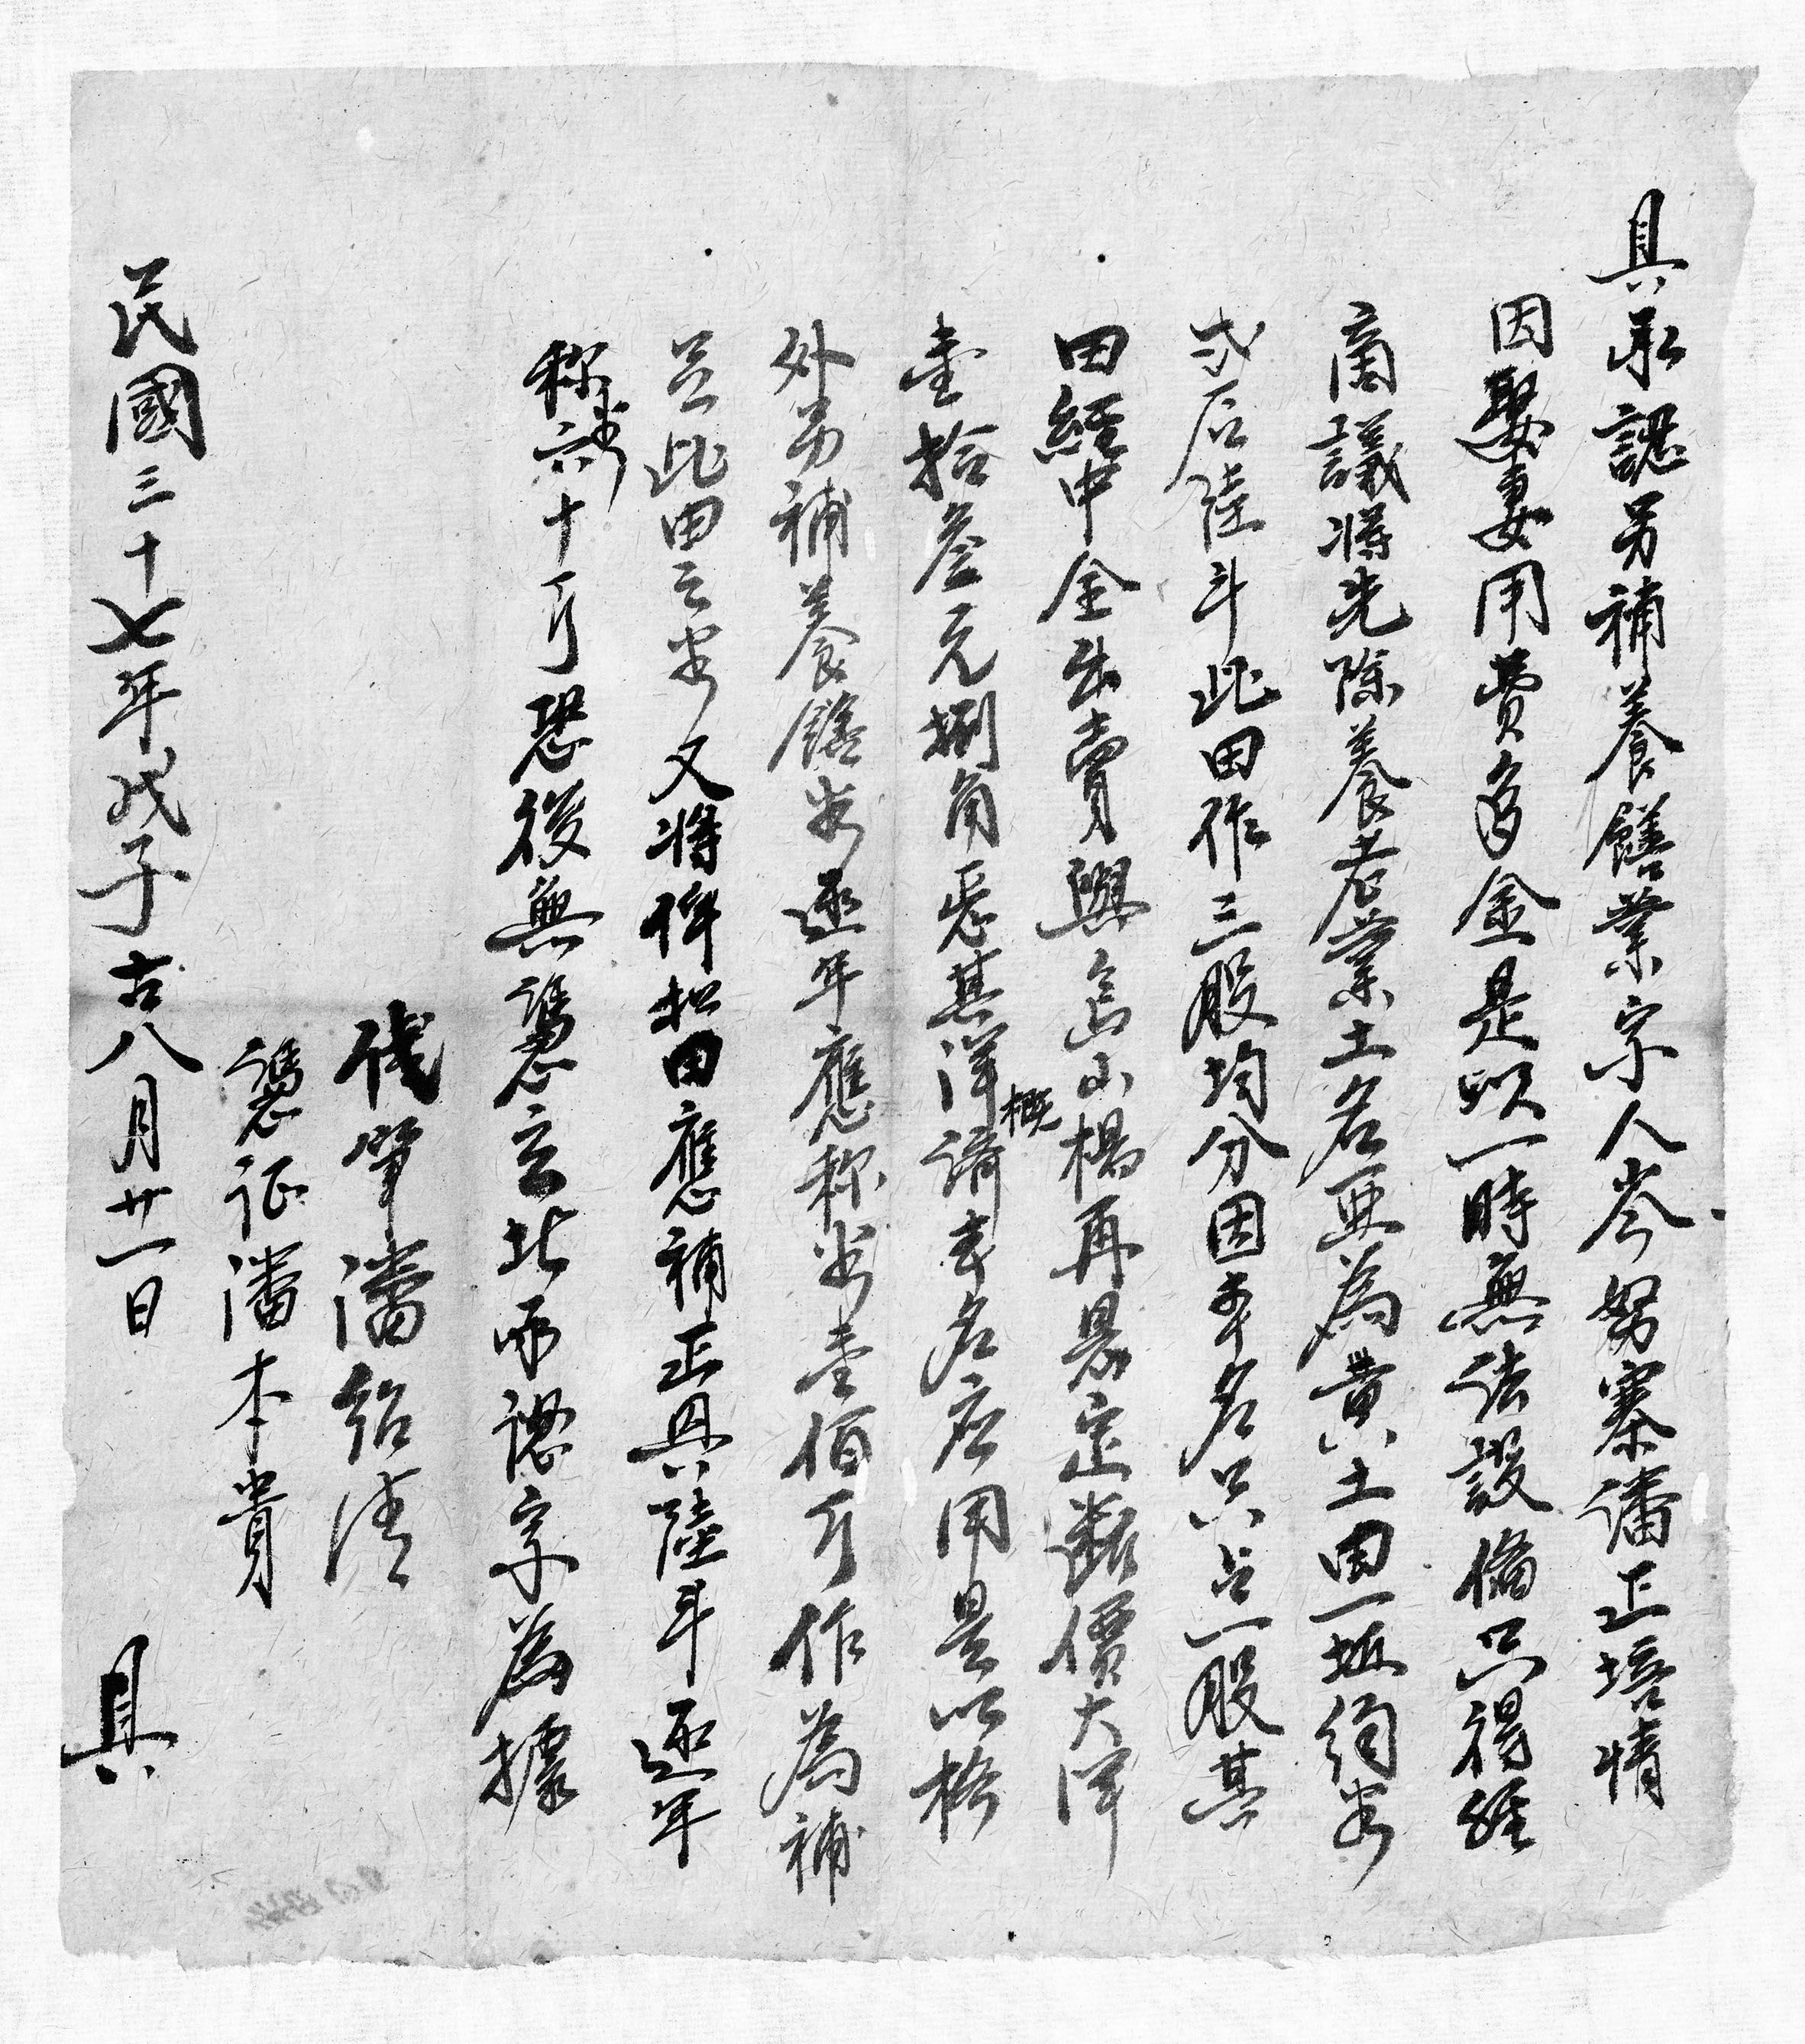 具承認另補養饍業字人岑努寨潘正培情
因娶妻用費多金是以一時無法設俻只得経
商議將先除養老業土名亜為黄土田一坵約谷
弍石陸斗此田作三股均分因本名只占一股其
田經中全出賣與烏山楊再景定断價大洋
壹拾叁元捌角悉其洋概諦本名应用是以格
外另補養饍谷逐年應称谷壹佰斤作為補
足此田之谷又將伴松田應補正具陸斗逐年
称谷六十斤恐後無憑立此承認字為據
伐筆潘紹清
憑証潘本貴
民國三十七年戊子古八月廿一日 具